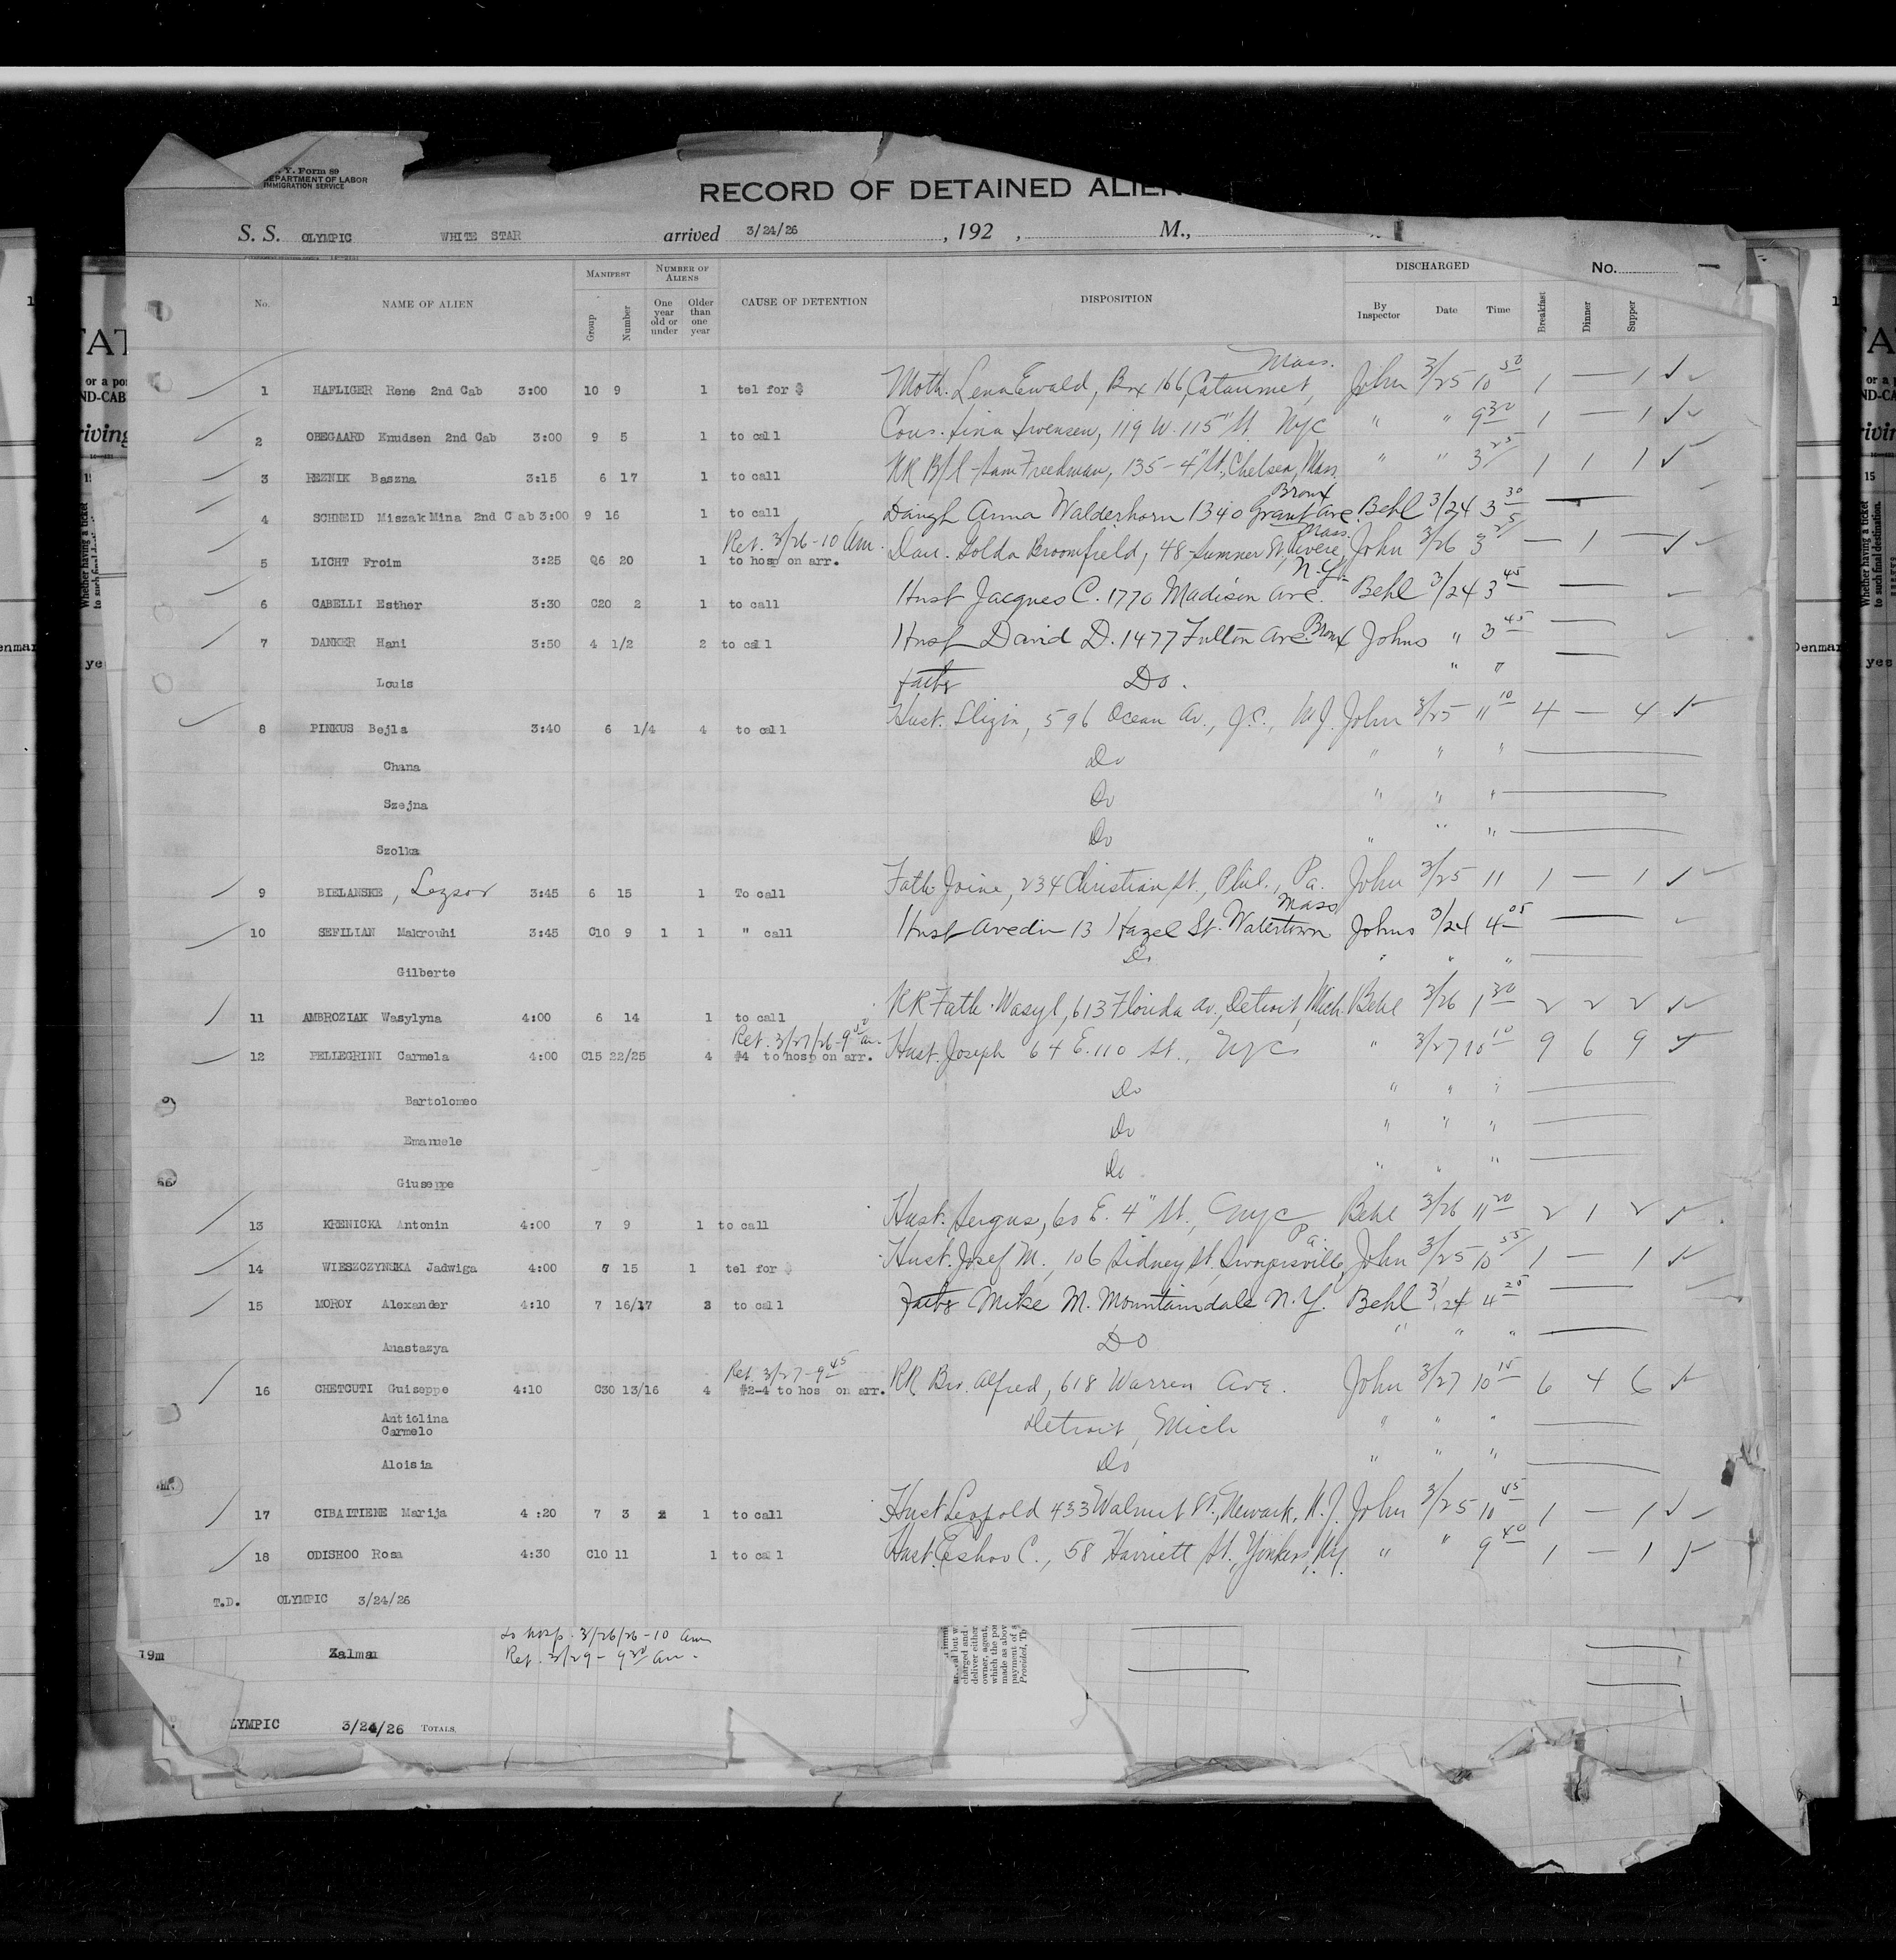 N. Y. Form 89
DEPARTMENT OF LABOR
IMMIGRATION SERVICE
RECORD OF DETAINED ALIEN
S. S. OLYMPIC WHITE STAR arrived 3/24/26, 192 , M.,
No. NAME OF ALIEN MANIFEST Group Number NUMBER OF ALIENS One year old or under Older than one year CAUSE OF DETENTION DISPOSITION DISCHARGED By Inspector Date Time Breakfast Dinner Supper No.
1 HAFLIGER Rene 2nd Cab 3:00 10 9 1 tel for $ Moth. Lena Ewald, Box 166, Cataumet, Mass. John 3/25 10 50 1 — 1
2 OBEGAARD Knudsen 2nd Cab 3:00 9 5 1 to call Cous. Sina Swensen, 119 W. 115" St. Nyc " " 9 30 1 — 1
3 REZNIK Baszna 3:15 6 17 1 to call RR B/l Sam Freedman, 135-4" St., Chelsea, Mass. " " 3 25 1 1 1
4 SCHNEID Miszak Mina 2nd Cab 3:00 9 16 1 to call Daugh Anna Walderhorn 1340 Grant Ave. Bronx Behl 3/24 3 30 —
Ret. 3/26-10 am.
5 LICHT Froim 3:25 Q6 20 1 to hosp on arr. Dau. Golda Broomfield, 48 Sumner St., Revere, Mass. John 3/26 3 25 — 1 —
6 CABELLI Esther 3:30 C20 2 1 to call Husb Jacques C. 1770 Madison Ave. N.Y. Behl 3/24 3 45 —
7 DANKER Hani 3:50 4 1/2 2 to call Husb David D. 1477 Fulton Ave. Bronx Johns " 3 45 —
Louis Father Do. " " —
8 PINKUS Bejla 3:40 6 1/4 4 to call Husb. , 596 Ocean Av., J.C., N.J. John 3/25 11 10 4 — 4
Chana Do " " " —
Szejna Do " " " —
Szolka Do " " " —
9 BIELANSKE, 3:45 6 15 1 To call Fath Joine, 234 Christian St., Phil., Pa. John 3/25 11 1 — 1
10 SEFILIAN Makrouhi 3:45 C10 9 1 1 " call Husb Avedis 13 Hazel St. Watertown Mass Johns 3/24 4 05 —
Gilberte Do " " " —
11 AMBROZIAK Wasylyna 4:00 6 14 1 to call RR Fath. Wasyl, 613 Florida Av., Detroit, Mich. Behl 3/26 1 30 2 2 2
Ret. 3/27/26-9 50 am.
12 PELLEGRINI Carmela 4:00 C15 22/25 4 #4 to hosp on arr. Husb. Joseph 64 E. 110 St., Nyc " 3/27 10 10 9 6 9
Bartolomeo Do " " " —
Emanuele Do " " " —
Giuseppe Do " " " —
13 KRENICKA Antonin 4:00 7 9 1 to call Husb. , 60 E. 4" St., Nyc Behl 3/26 11 20 2 1 2
14 WIESZCZYNSKA Jadwiga 4:00 6 15 1 tel for $ Husb. Josef M., 106 Sidney St., Swoyersville, Pa. John 3/25 10 55 1 — 1
15 MOROY Alexander 4:10 7 16/17 2 to call Father Mike M. Mountaindale N.Y. Behl 3/24 4 25 —
Anastazya Do " " " —
Ret. 3/27-9 45
16 CHETCUTI Guiseppe 4:10 C30 13/16 4 #2-4 to hos on arr. RR Bro. Alfred, 618 Warren Ave. John 3/27 10 15 6 4 6
Antiolina
Carmelo Detroit, Mich " " " —
Aloisia Do " " " —
17 CIBAITIENE Marija 4:20 7 3 1 to call Husb Leopold 433 Walnut St., Newark, N.J. John 3/25 10 45 1 — 1
18 ODISHOO Rosa 4:30 C10 11 1 to call Husb. Eshoo C., 58 Harriett St., Yonkers, Ny. " " 9 40 1 — 1
T.D. OLYMPIC 3/24/26
to hosp. 3/26/26-10 am
19m Zalman Ret. 3/29-9 30 am.
LYMPIC 3/24/26 TOTALS.